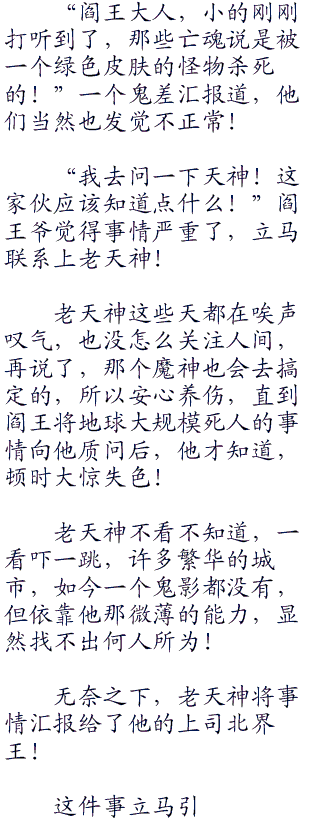 “阎王大人，小的刚刚
打听到了，那些亡魂说是被
一个绿色皮肤的怪物杀死
的！”一个鬼差汇报道，他
们当然也发觉不正常！
“我去问一下天神！这
家伙应该知道点什么！”阎
王爷觉得事情严重了，立马
联系上老天神！
老天神这些天都在唉声
叹气，也没怎么关注人间，
再说了，那个魔神也会去搞
定的，所以安心养伤，直到
阎王将地球大规模死人的事
情向他质问后，他才知道，
顿时大惊失色！
老天神不看不知道，一
看吓一跳，许多繁华的城
市，如今一个鬼影都没有，
但依靠他那微薄的能力，显
然找不出何人所为！
无奈之下，老天神将事
情汇报给了他的上司北界
王！
这件事立马引